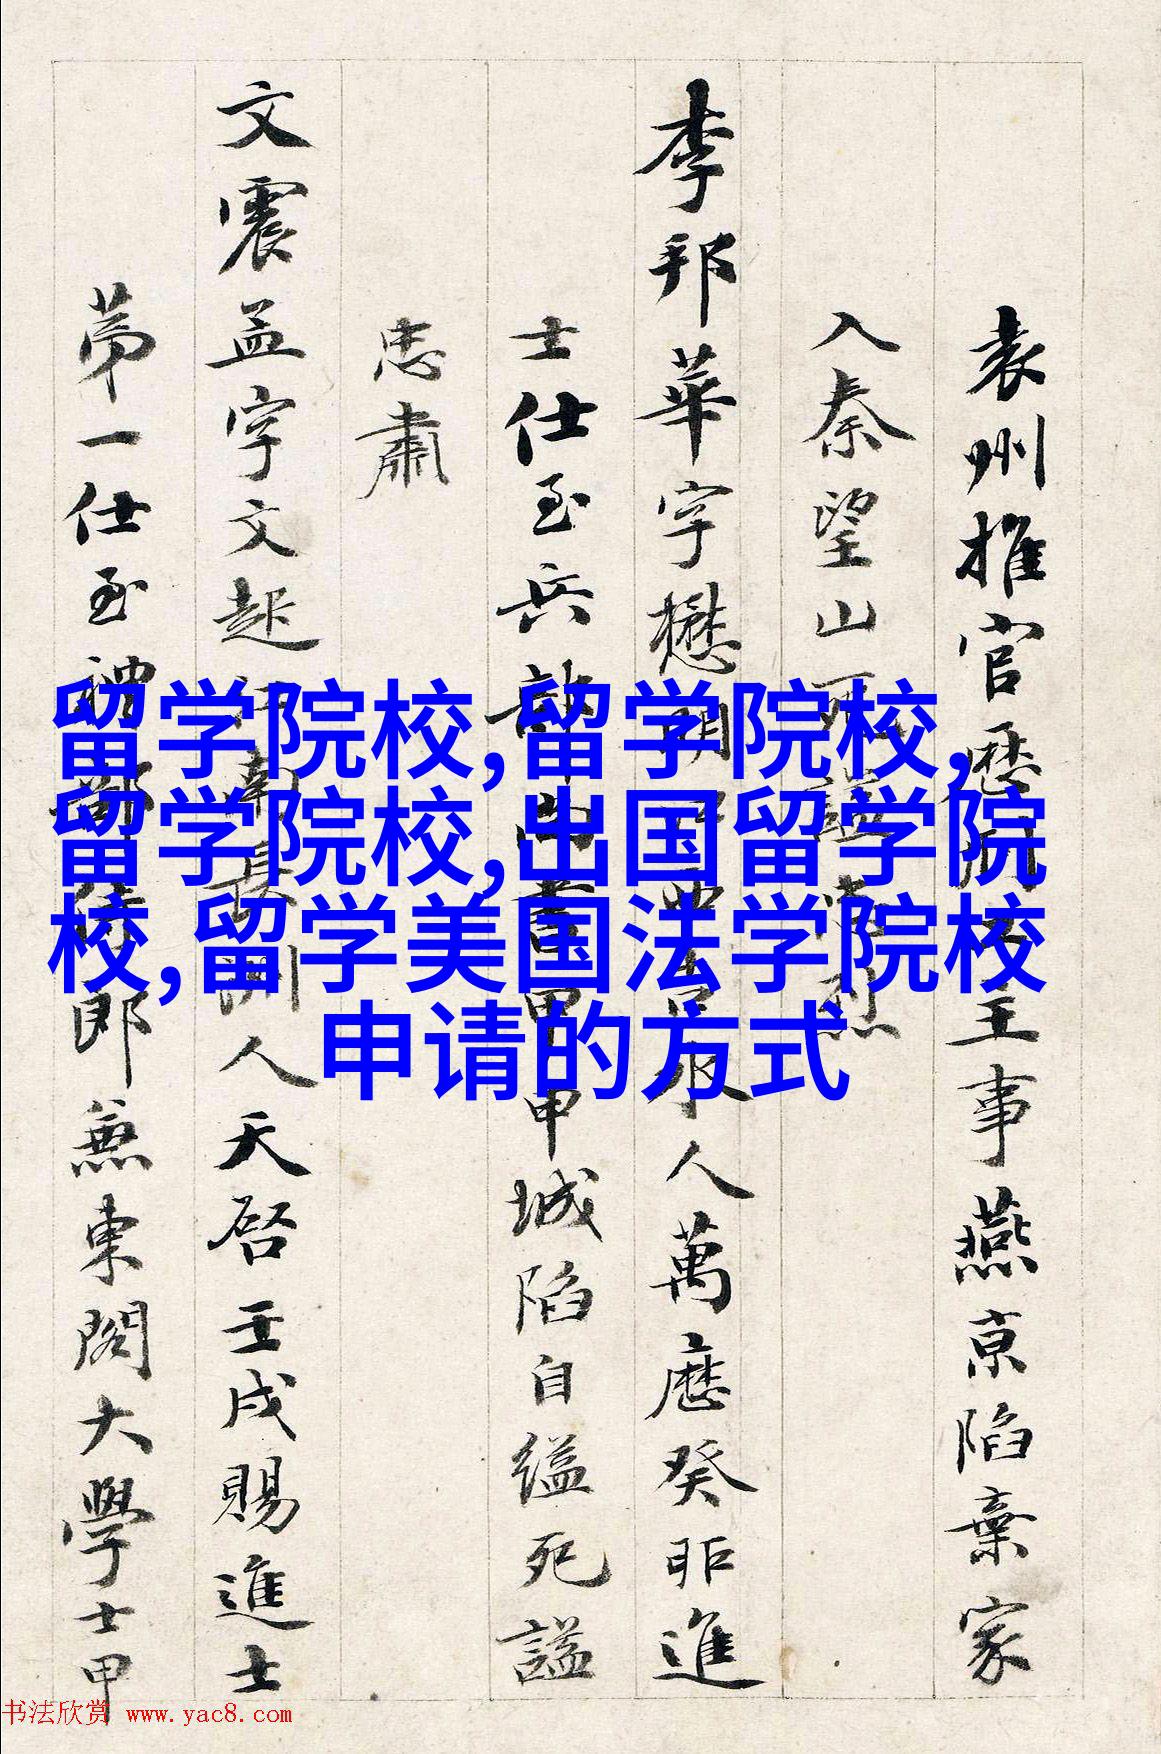 袁州推官歷
王事燕京陷棄家
入秦望山
李邦華字懋明
人萬曆癸卯進
士仕至兵部
甲申城陷自縊死謚
忠肅
文震孟字文起
人天啓壬戌賜進士
第一仕至禮部
郎兼東閣大學士甲
留学院校,留学院校,
留学院校,出国留学院
校,留学美国法学院校
申请的方式
书法欣赏 www.yac8.com